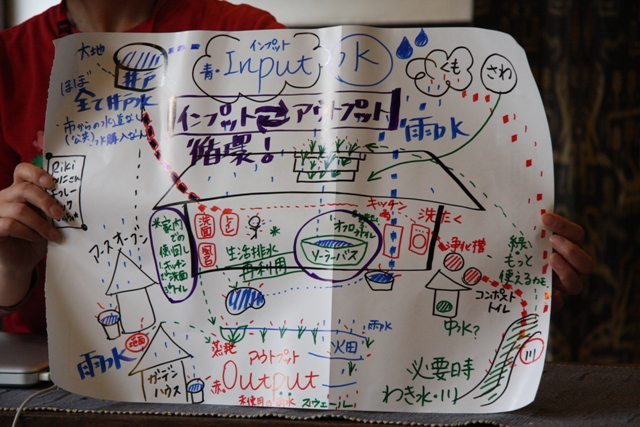 大地
井戸
ほぼ
全て井戸水
市からの水道なし
(公共)
インプット
青・Input
水
くも
さわ
インプット⇄アウトプット
循環！
雨水
Riki
アースオーブン
*家内
での
使い回し
キッチン
洗面
トイレ
洗面
風呂
生活排水
再利用
ソーラーバス
キッチン
洗たく
浄化槽
緑に
もっと
使えるかも
コンポスト
トイレ
中水?
川
雨水
地面
蒸発
アウトプット
赤・Output
雨水
ガーデン
ハウス
スウェール
必要時
わき水・川